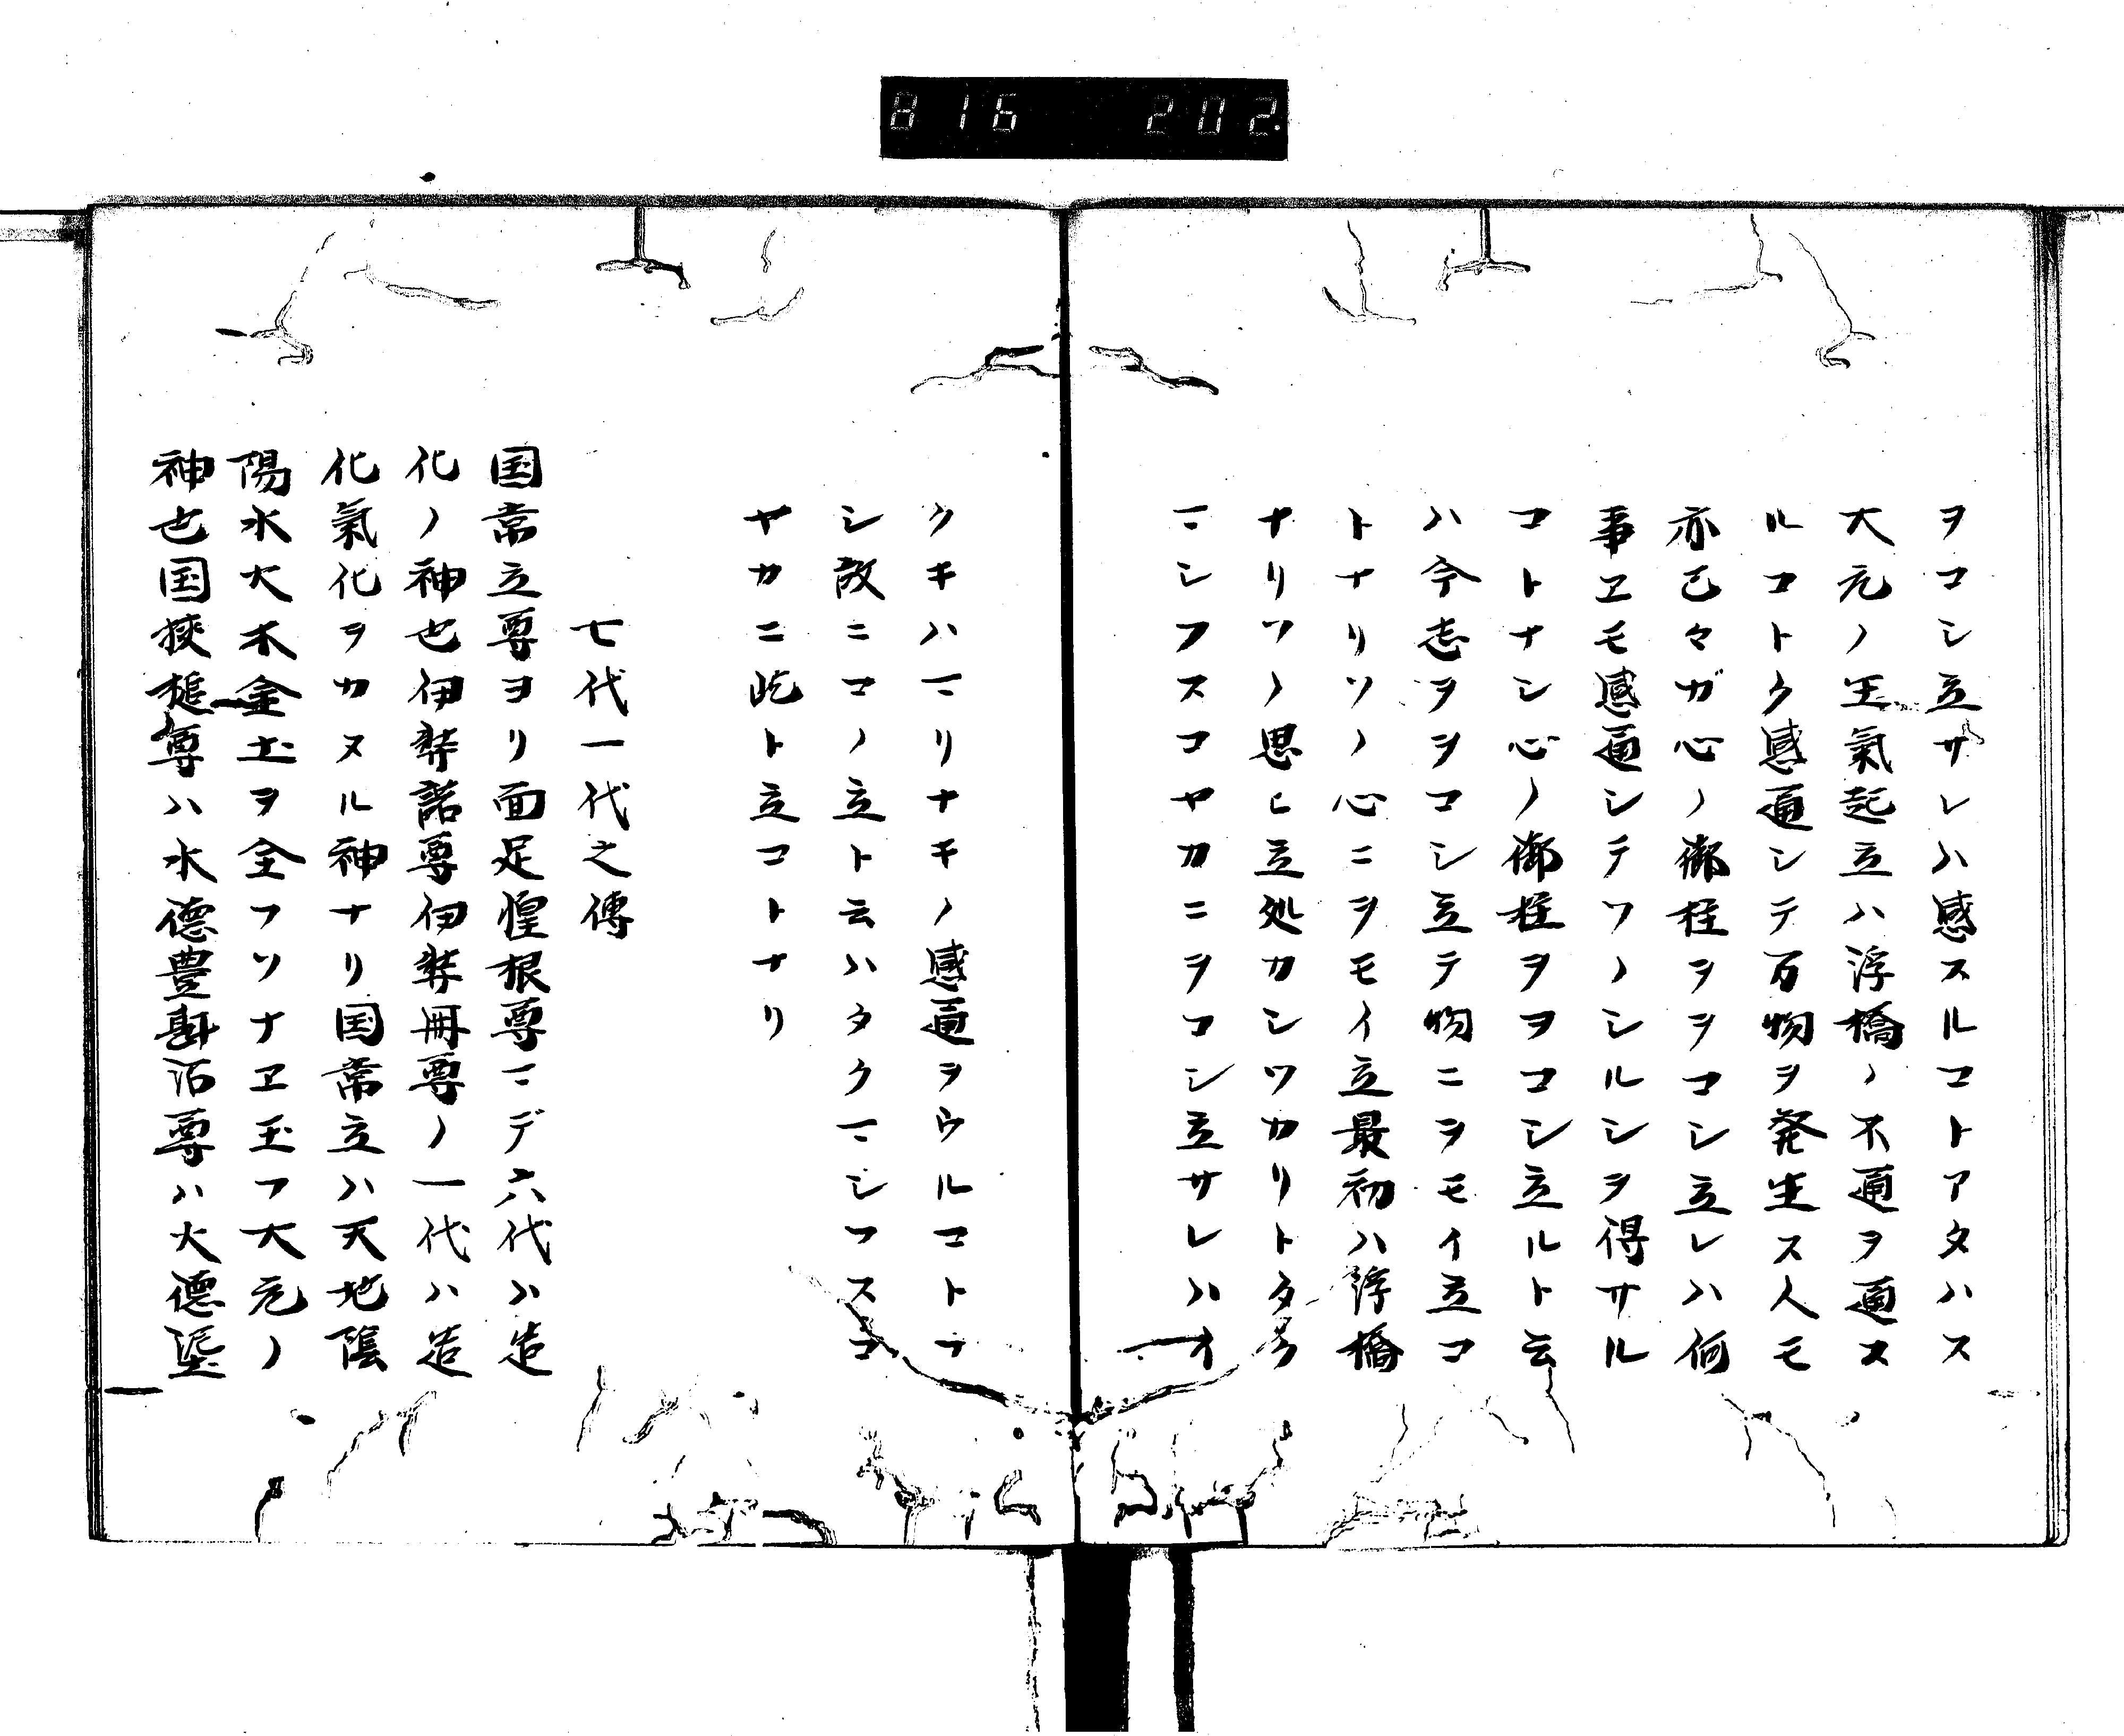 816 202.
ヲコシ立サレハ感スルコトアタハス
大元ノ王氣起立ハ浮橋ノ不通ヲ通ス
ルコトク感通シテ万物ヲ発生ス人モ
亦己々ガ心ノ御柱ヲヲコシ立レハ何
事ヱモ感通シテソノシルシヲ得サル
コトナシ心ノ御柱ヲヲコシ立ルト云
ハ今志ヲヲコシ立テ物ニヲモイ立コ
トナリソノ心ニヲモイ立最初ハ浮橋
ナリソノ思ヒ立処カシツカリトタク
マシフスコヤカニヲコシ立サレハオ
クキハマリナキノ感通ヲウルコトナ
シ故ニコノ立ト云ハタクマシフスコ
ヤカニ屹ト立コトナリ
七代一代之傳
国常立尊ヨリ面足惶根尊マデ六代ハ造
化ノ神也伊弉諾尊伊弉冊尊ノ一代ハ造
化氣化ヲカヌル神ナリ国常立ハ天地陰
陽水火木金土ヲ全フソナヱ玉フ大元ノ
神也国狹槌尊ハ水德豊斟渟尊ハ火德埿